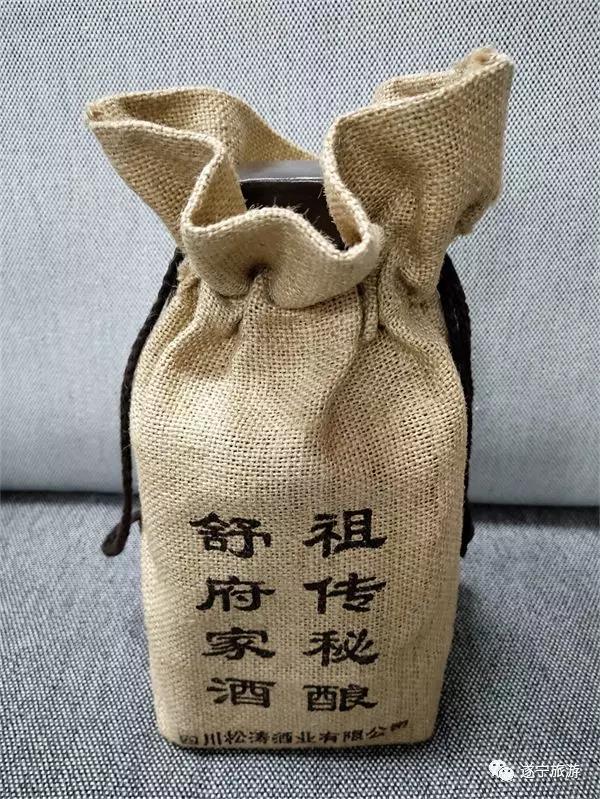 祖传秘酿
舒府家酒
四川松涛酒业有限公司
遂宁旅游